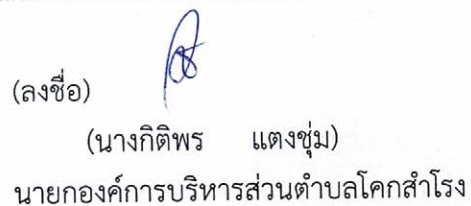 (ลงชื่อ)
(นางกิติพร แตงชุ่ม)
นายกองค์การบริหารส่วนตำบลโคกสำโรง